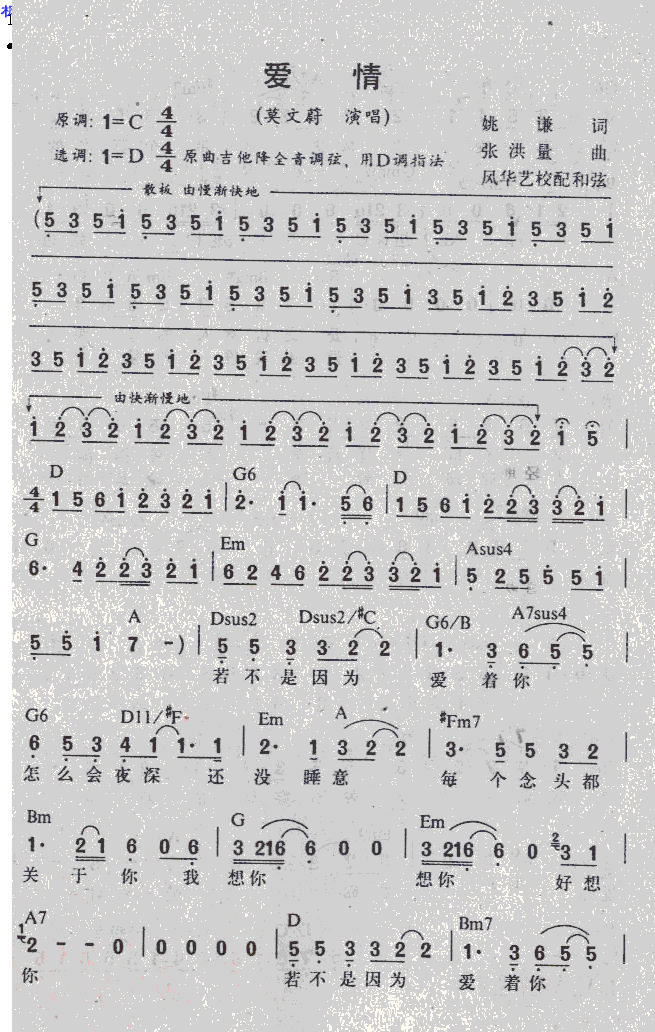 爱 情
原调: 1=C 4/4 (莫文蔚 演唱) 姚 谦 词
选调: 1=D 4/4 原曲吉他降全音调弦, 用D调指法 张 洪 量 曲
风华艺校配和弦
散板 由慢渐快地
(5 3 5 1 5 3 5 1 5 3 5 1 5 3 5 1 5 3 5 1 5 3 5 1
5 3 5 1 5 3 5 1 5 3 5 1 5 3 5 1 3 5 1 2 3 5 1 2
3 5 1 2 3 5 1 2 3 5 1 2 3 5 1 2 3 5 1 2 3 5 1 2 3 2
由快渐慢地
1 2 3 2 1 2 3 2 1 2 3 2 1 2 3 2 1 2 3 2 1 5 |
D G6 D
4/4 1 5 6 1 2 3 2 1 | 2· 1 1· 5 6 | 1 5 6 1 2 2 3 3 2 1 |
G Em Asus4
6· 4 2 2 3 2 1 | 6 2 4 6 2 2 3 3 2 1 | 5 2 5 5 5 1 |
A Dsus2 Dsus2/#C G6/B A7sus4
5 5 1 7 -) | 5 5 3 3 2 2 | 1· 3 6 5 5 |
若 不 是 因 为 爱 着 你
G6 D11/#F Em A #Fm7
6 5 3 4 1 1· 1 | 2· 1 3 2 2 | 3· 5 5 3 2 |
怎 么 会 夜 深 还 没 睡 意 每 个 念 头 都
Bm G Em
1· 2 1 6 0 6 | 3 216 6 0 0 | 3 216 6 0 2 3 1 |
关 于 你 我 想 你 想 你 好 想
A7 D Bm7
1 2 - - 0 | 0 0 0 0 | 5 5 3 3 2 2 | 1· 3 6 5 5 |
你 若 不 是 因 为 爱 着 你